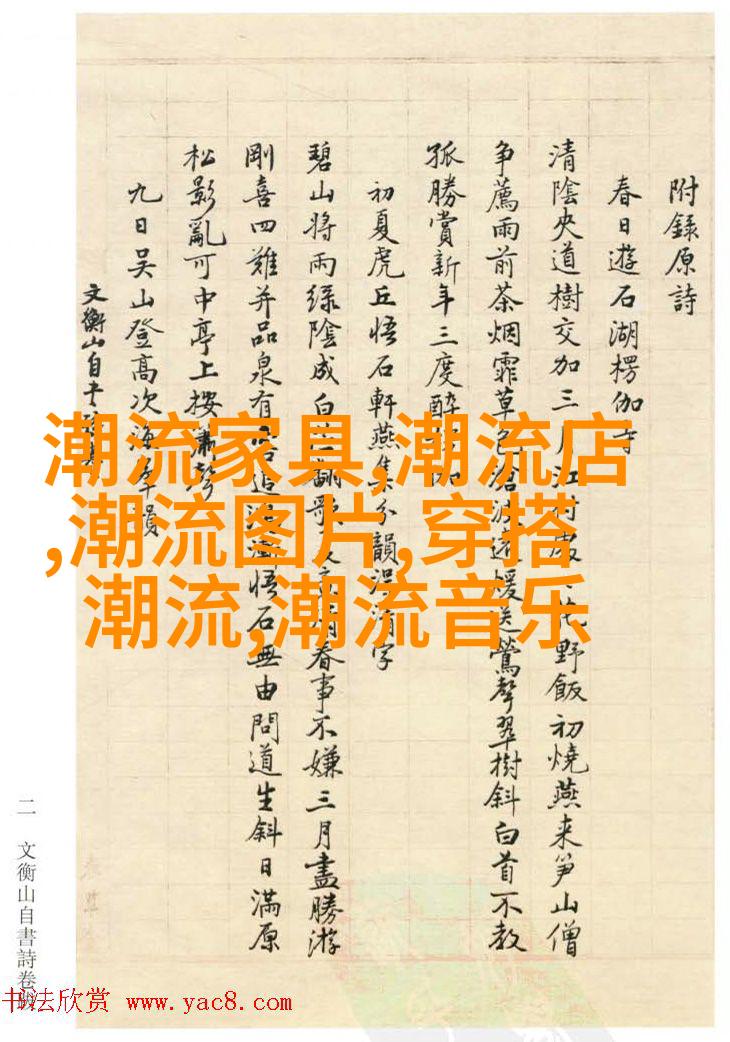 附錄原詩
春日遊石湖楞伽寺
清陰夾道樹交加三月江村花野飯初燒燕来笋山僧
争薦雨前茶烟霏草色滄波遠煖送鶯聲翠樹斜白首不教
孤勝賞新年三度醉
初夏虎丘悟石軒燕集分韻得清字
碧山將雨綠陰成白翻歌春事不嫌三月盡勝游
剛喜四難并品泉有追悟石無由問道生斜日滿原
松影亂可中亭上按聲
九日吴山登高次韻
文衡山自
二 文衡山自書詩卷跋
潮流家具,潮流店
,潮流图片,穿搭
潮流,潮流音乐
书法欣赏 www.yac8.com